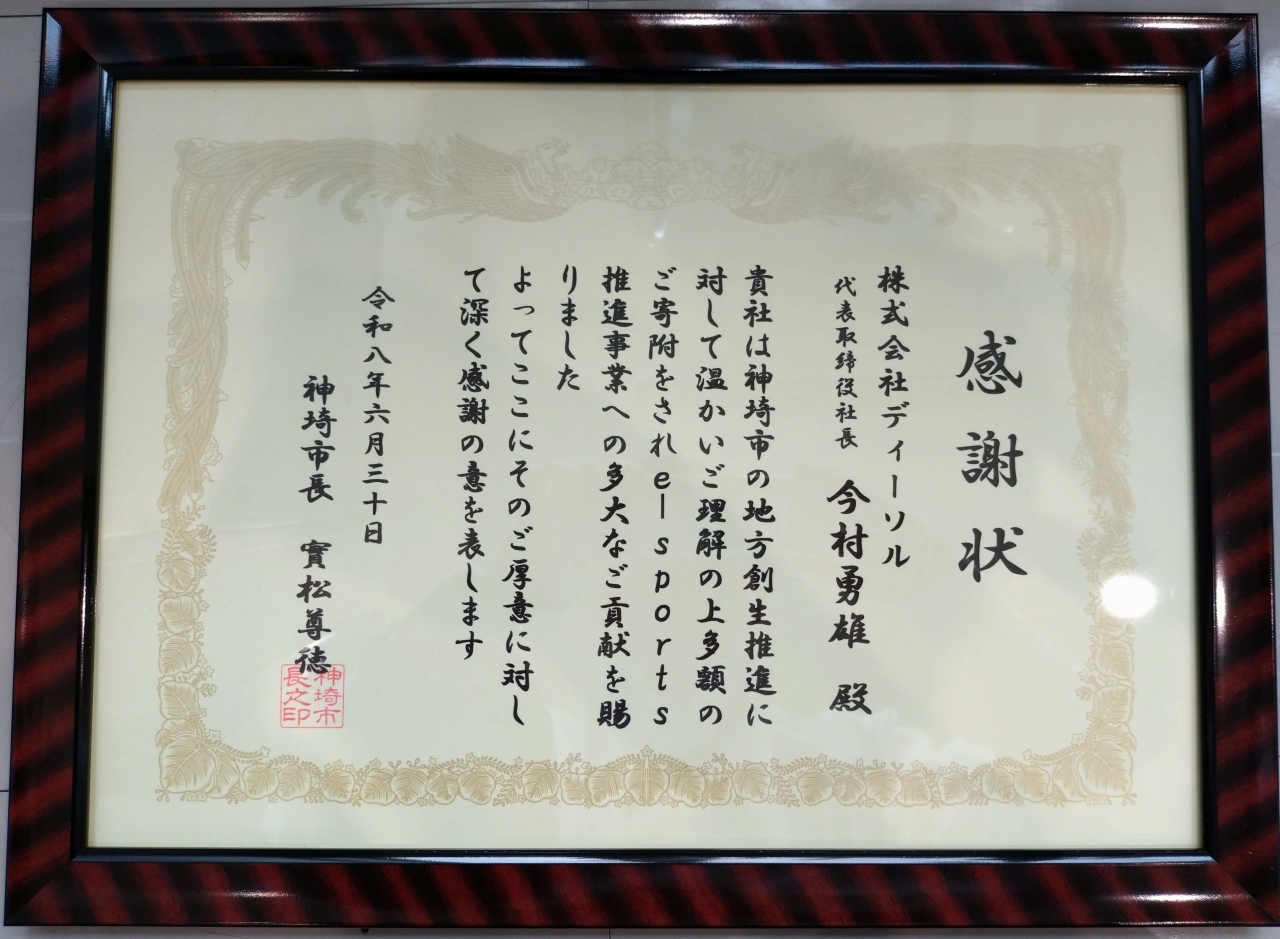 感謝状
株式会社ディーソル
代表取締役社長 今村勇雄 殿
貴社は神埼市の地方創生推進に
対して温かいご理解の上多額の
ご寄附をされe−sports
推進事業への多大なご貢献を賜
りました
よってここにそのご厚意に対し
て深く感謝の意を表します
令和八年六月三十日
神埼市長 實松尊徳
神埼市
長之印